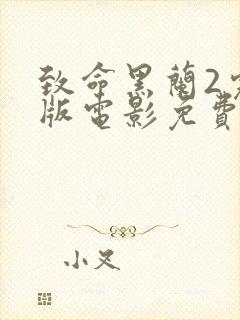 致命黑蘭2
版電影免費
小叉